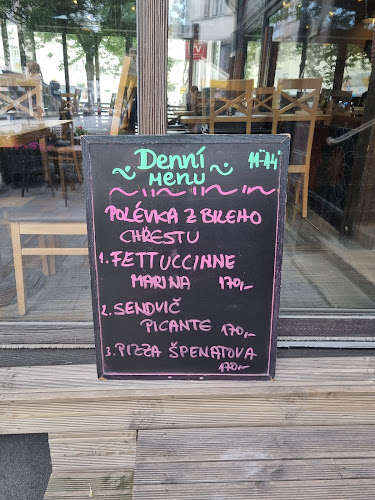 Denní 11-14
MENU
POLÉVKA Z BILEHO
CHŘESTU
1. FETTUCCINNE
MARINA 170,-
2. SENDVIČ
PICANTE 170,-
3. PIZZA ŠPENATOVA
170,-